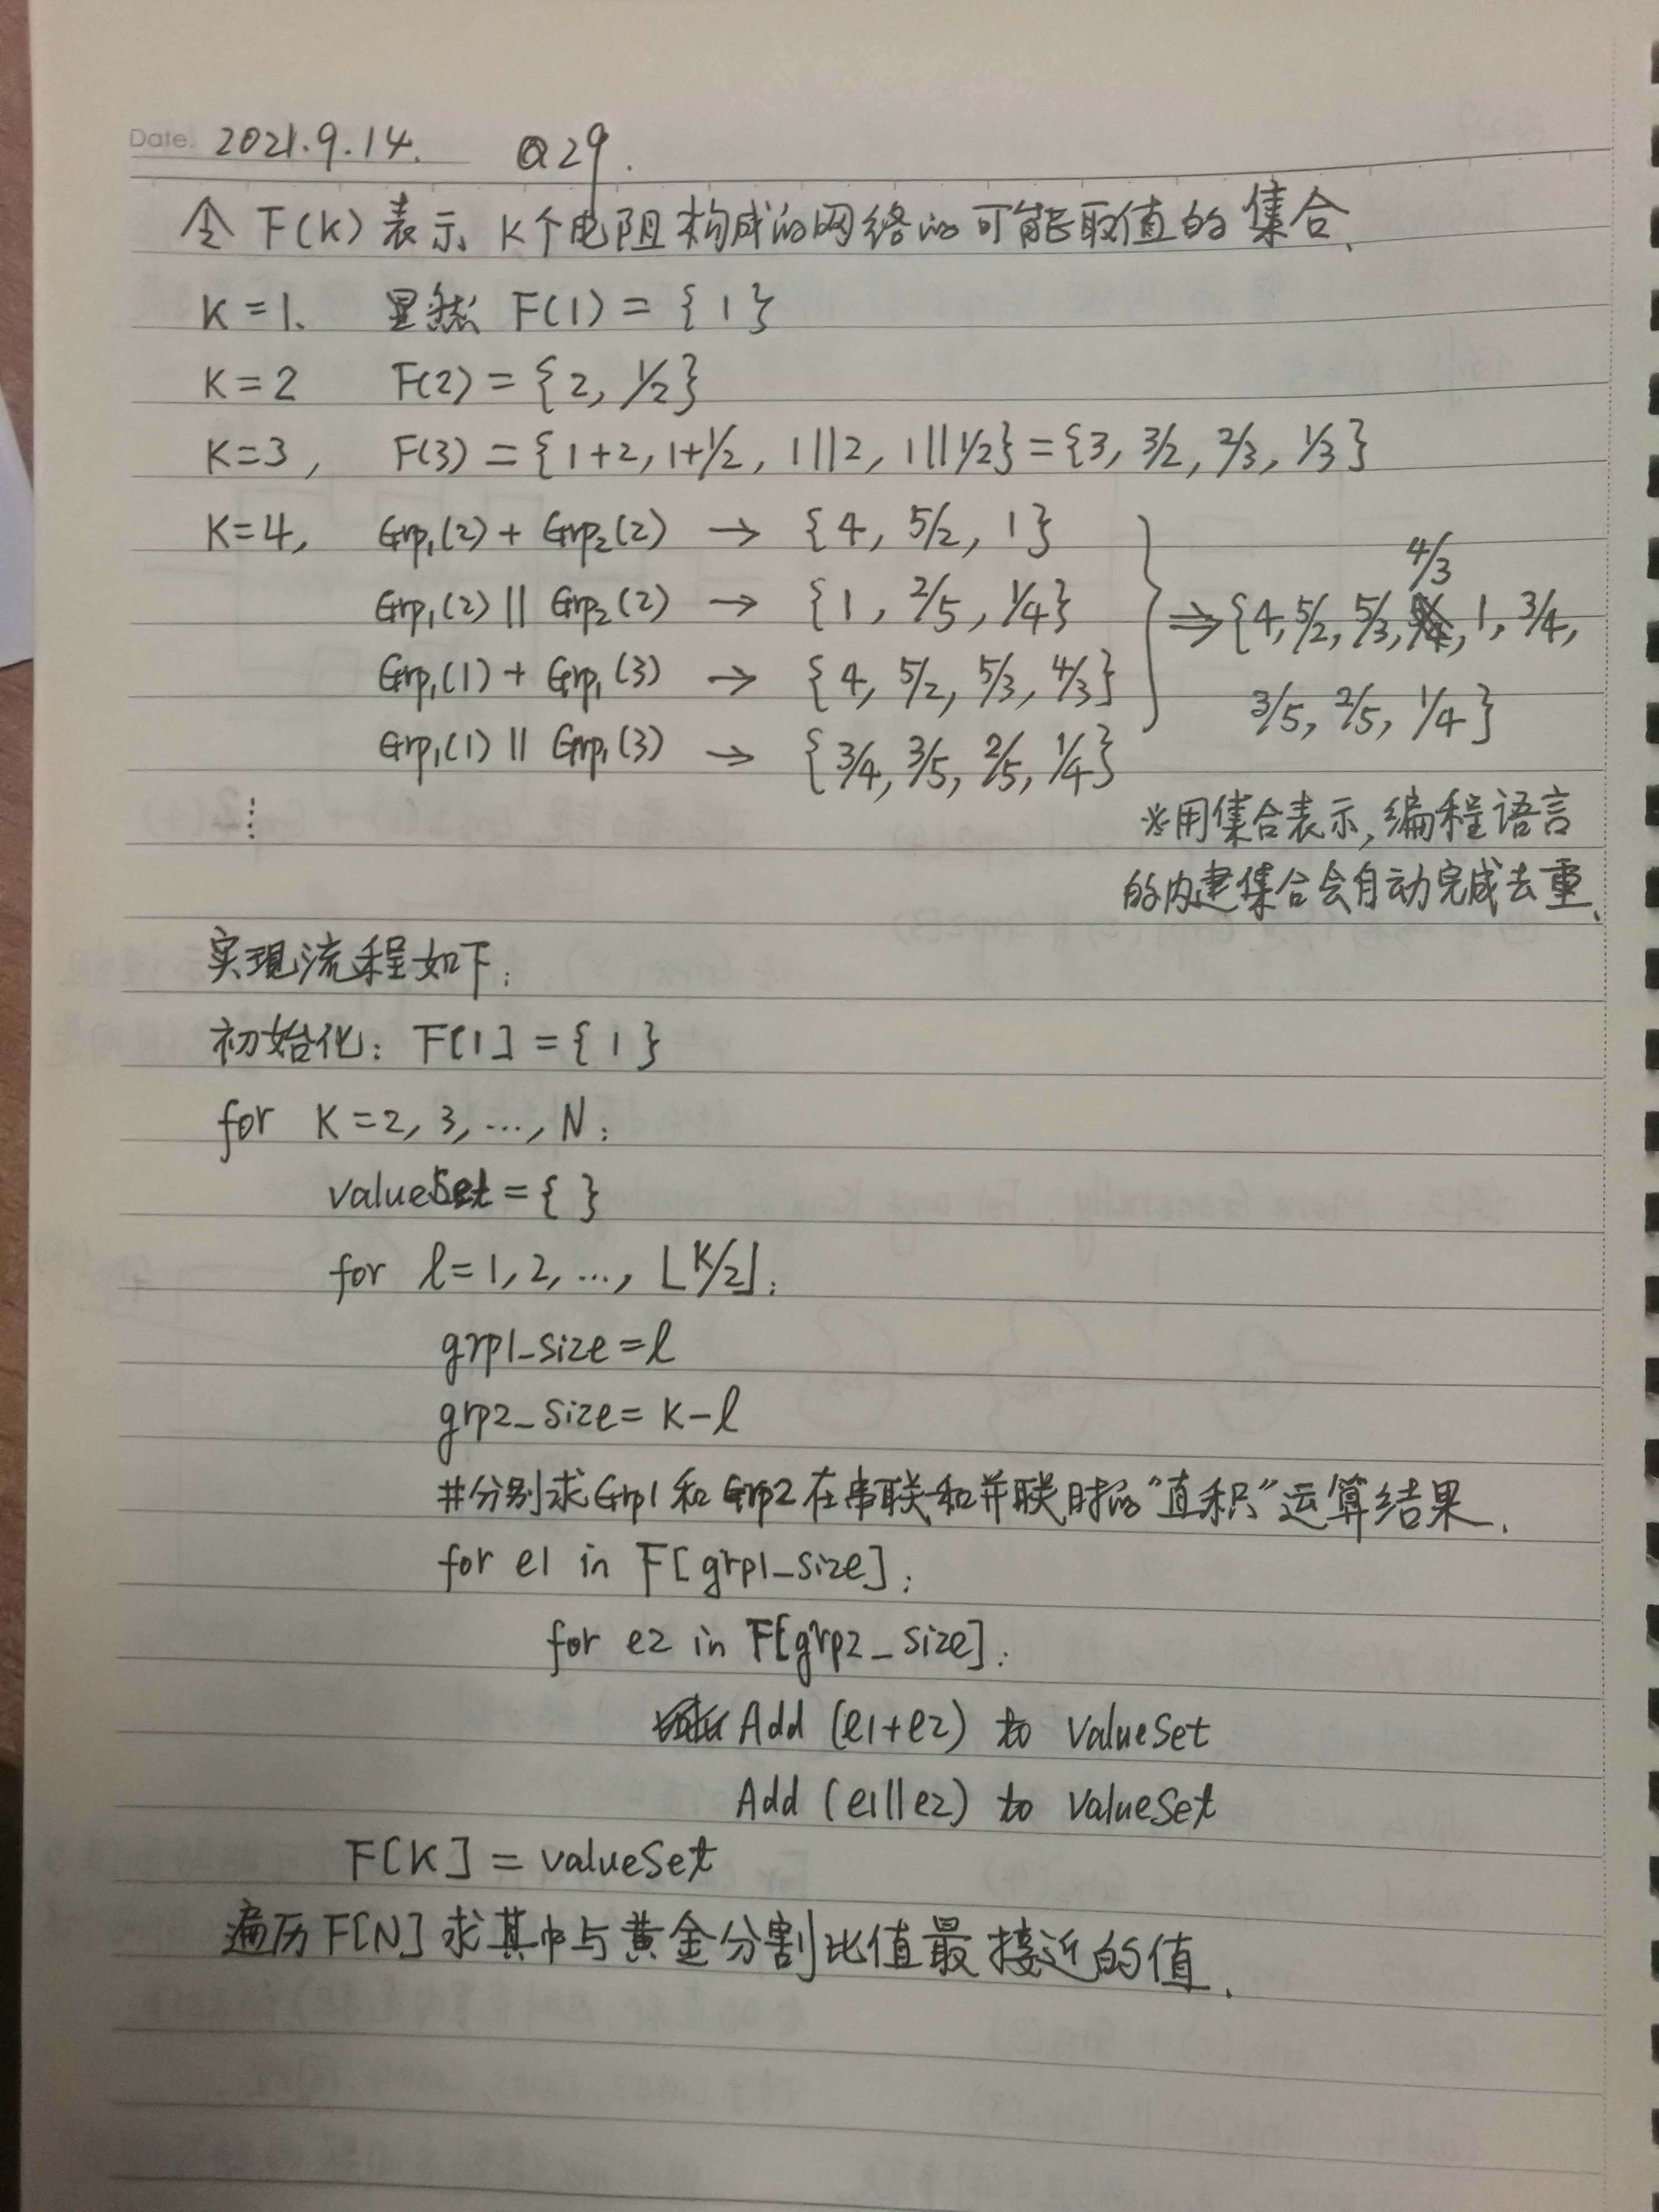 Date. 2021.9.14. Q29.
令 F(K) 表示 K个电阻构成的网络的可能取值的集合.
K=1. 显然 F(1) = {1}
K=2 F(2) = {2, 1/2}
K=3, F(3) = {1+2, 1+1/2, 1||2, 1||1/2} = {3, 3/2, 2/3, 1/3}
K=4, Grp₁(2) + Grp₂(2) → {4, 5/2, 1}
4/3
Grp₁(2) || Grp₂(2) → {1, 2/5, 1/4} ⇒ {4, 5/2, 5/3, , 1, 3/4,
Grp₁(1) + Grp₁(3) → {4, 5/2, 5/3, 4/3} 3/5, 2/5, 1/4}
Grp₁(1) || Grp₁(3) → {3/4, 3/5, 2/5, 1/4}
⋮
※用集合表示,编程语言
的内建集合会自动完成去重.
实现流程如下:
初始化: F[1] = {1}
for K=2, 3, ..., N:
valueSet = { }
for l=1, 2, ..., ⌊K/2⌋:
grp1_size=l
grp2_size=K-l
#分别求Grp1和Grp2在串联和并联时的“直积”运算结果.
for e1 in F[grp1_size]:
for e2 in F[grp2_size]:
Add (e1+e2) to valueSet
Add (e1||e2) to valueSet
F[K] = valueSet
遍历F[N]求其中与黄金分割比值最接近的值.